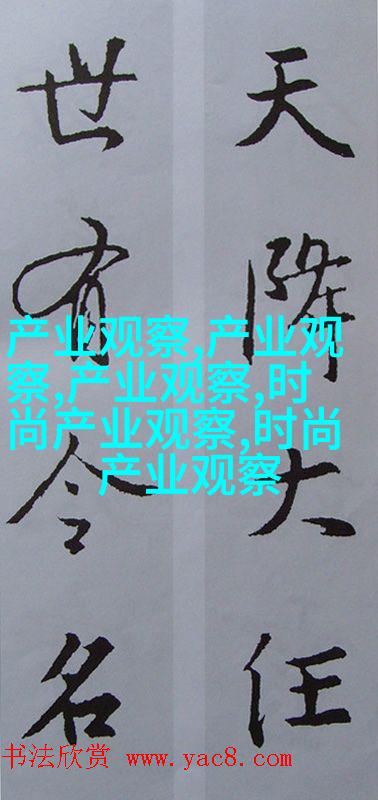 天降大任
世有令名
产业观察,产业观
察,产业观察,时
尚产业观察,时尚
产业观察
书法欣赏 www.yac8.com